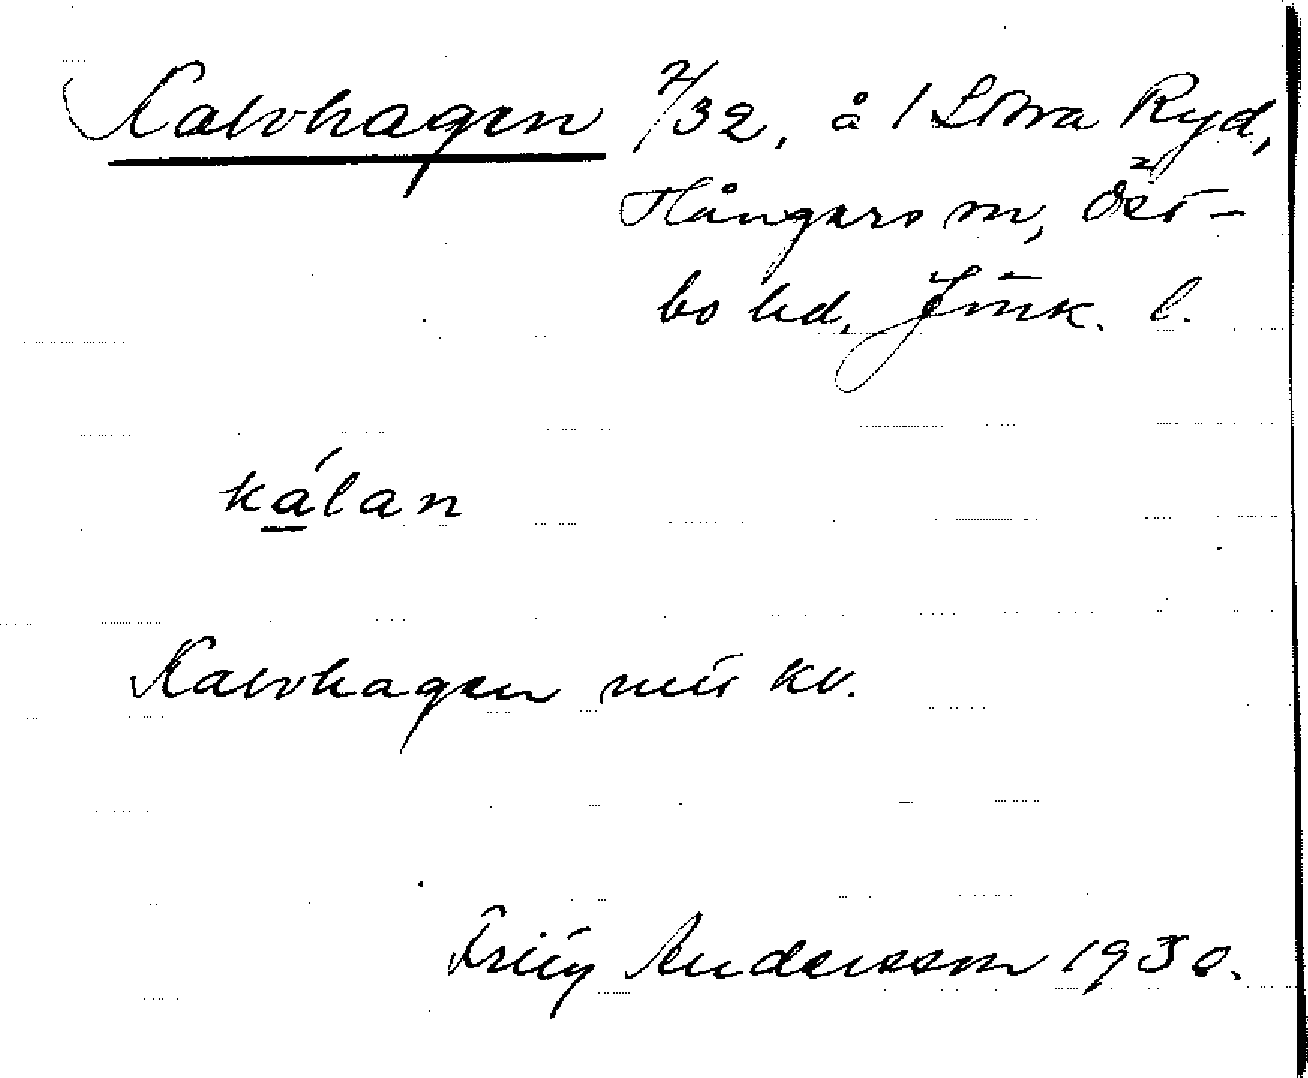 Kalvhagen 7/32, å 1 Stora Ryd,
Hångers sn, Öst-
bo hd, Jönk. l.
kálan
Kalvhagen utt. kv.
Andersson 1930.